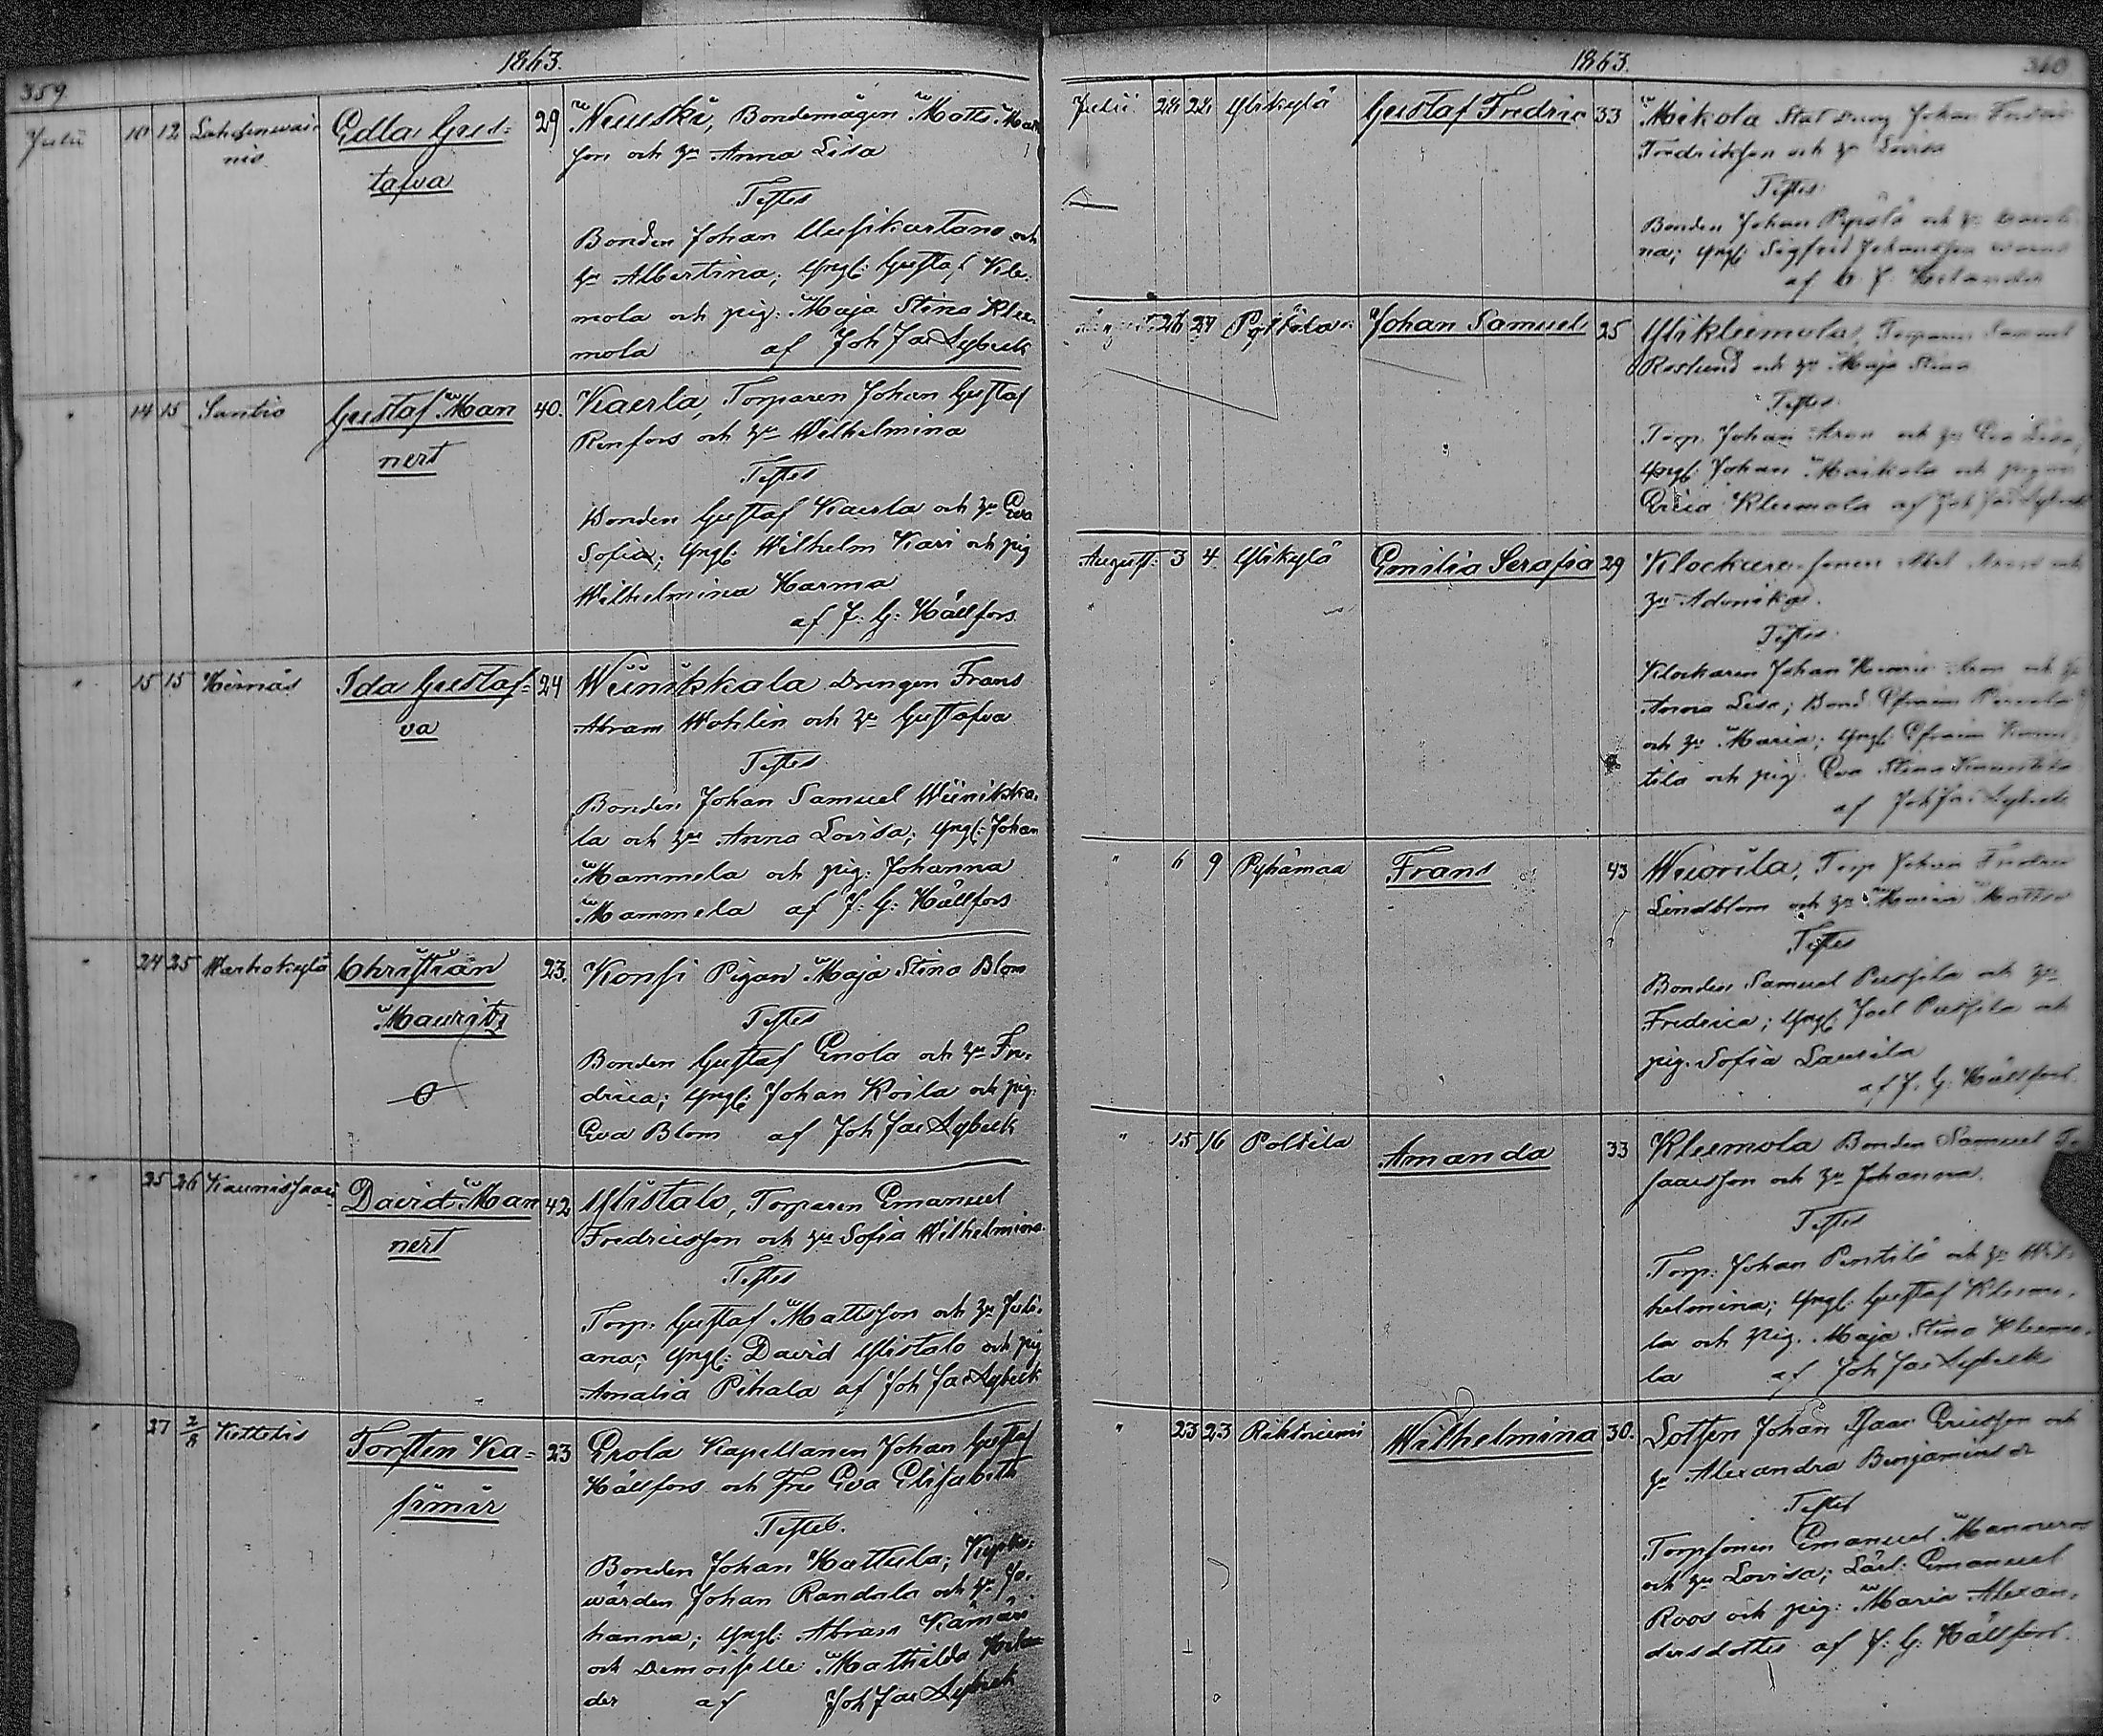 1863.
359
Julii 10 12 Edla Gus= 29 Bondemågen Matts
son och h:u Anna Lisa
tafva
Testes
Bonden Johan Uusikartano och
h:u Albertina; yngl: Gustaf Kle-
mola och pig: Maja Stina Klee-
mola af Joh Jac Nybeck
" 14 15 Santio Gustaf Man 40. Kaerla, Torparen Johan Gustaf
Renfors och h:u Wilhelmina
nert
Testes
Bonden Gustaf Kaerla och h:u Eva
Sofia; yngl: Wilhelm Kari och pig
Wilhelmina Harma
af J: G: Hällfors
" 15 15 Hernäs Ida Gustaf= 24 Wiinikkala Drengen Frans
Abram Wahlin och h:u Gustafva
va
Testes
Bonden Johan Samuel Wiinikka-
la och h:u Anna Lovisa; yngl: Johan
Mammela och pig: Johanna
Mammela af J: G: Hällfors
" 24 25 Warhokylä Christian 23. Konsi Pigan Maja Stina Blom
Mauritz
Testes
Bonden Gustaf Eriola och h:u Fre-
drica; yngl: Johan Koila och pig:
Eva Blom af Joh Jac Nybeck
" 25 26 David Man 42 Ylistalo, Torparen Emanuel
Fredricsson och h:u Sofia Wilhelmina
nert
Testes
Torp: Gustaf Mattsson och h:u Juli-
ana; yngl: David Ylistalo och pig
Amalia Pihala af Joh Jac Nybeck
" 27 2/8 Kettelis Torsten Ka= 23 Erola Kapellanen Johan Gustaf
Hällfors och Fru Eva Elisabeth
simir
Testes.
Bonden Johan Hattula; Kyrko-
wärden Johan Randala och h:u Jo-
hanna; yngl: Abram Kämäri
och Demoiselle Mathilda Helan
der af Joh Jac Nybeck
1863.
360
Julii 24 24 Ylikylä Gustaf Fredric 33 Mikola Johan
Fredriksson och h:u Lovisa
Testes
Bonden Johan och h:u
na; yngl: Sigfrid Johansson
af
26 27 Johan Samuel 25 Ylikleemola, Torparen Samuel
Roslund och h:u Maja Stina
Testes
Torp. Johan Aron och h:u Eva Lisa;
yngl: Johan och pigan
Erica Kleemola af Joh Jac Nybeck
August. 3 4 Ylikylä Emilia Serafia 29 Klockare-sonen Abel och
h:u
Testes
Klockaren Johan Henric Aron och h:u
Anna Lisa; Bond. Efraim
och h:u Maria; yngl: Efraim
tila och pig: Eva Stina
af Joh Jac Nybeck
" 6 9 Pyhämaa Frans 43 Wuorila, Torp Johan Fredric
Lindblom och h:u Maria
Testes
Bonden Samuel Pussila och h:u
Fredrica; yngl: Joel Pussila och
pig. Sofia Laurila
af J. G. Hällfors.
" 15 16 Poltila Amanda 33 Kleemola Bonden Samuel I-
saacsson och h:u Johanna.
Testes
Torp: Johan Pentilä och h:u Wil-
helmina; yngl: Gustaf Kleemo-
la och pig. Maja Stina Kleemo-
la af Joh Jac Nybeck
" 23 23 Rihtniemi Wilhelmina 30. Lotsen Johan Isaac Ericsson och
h:u Alexandra Benjaminsd:r
Testes
Torpsonen Emanuel
och h:u Lovisa; Lärl: Emanuel
Roos och pig: Maria Alexan-
dersdotter af J: G: Hällfors.